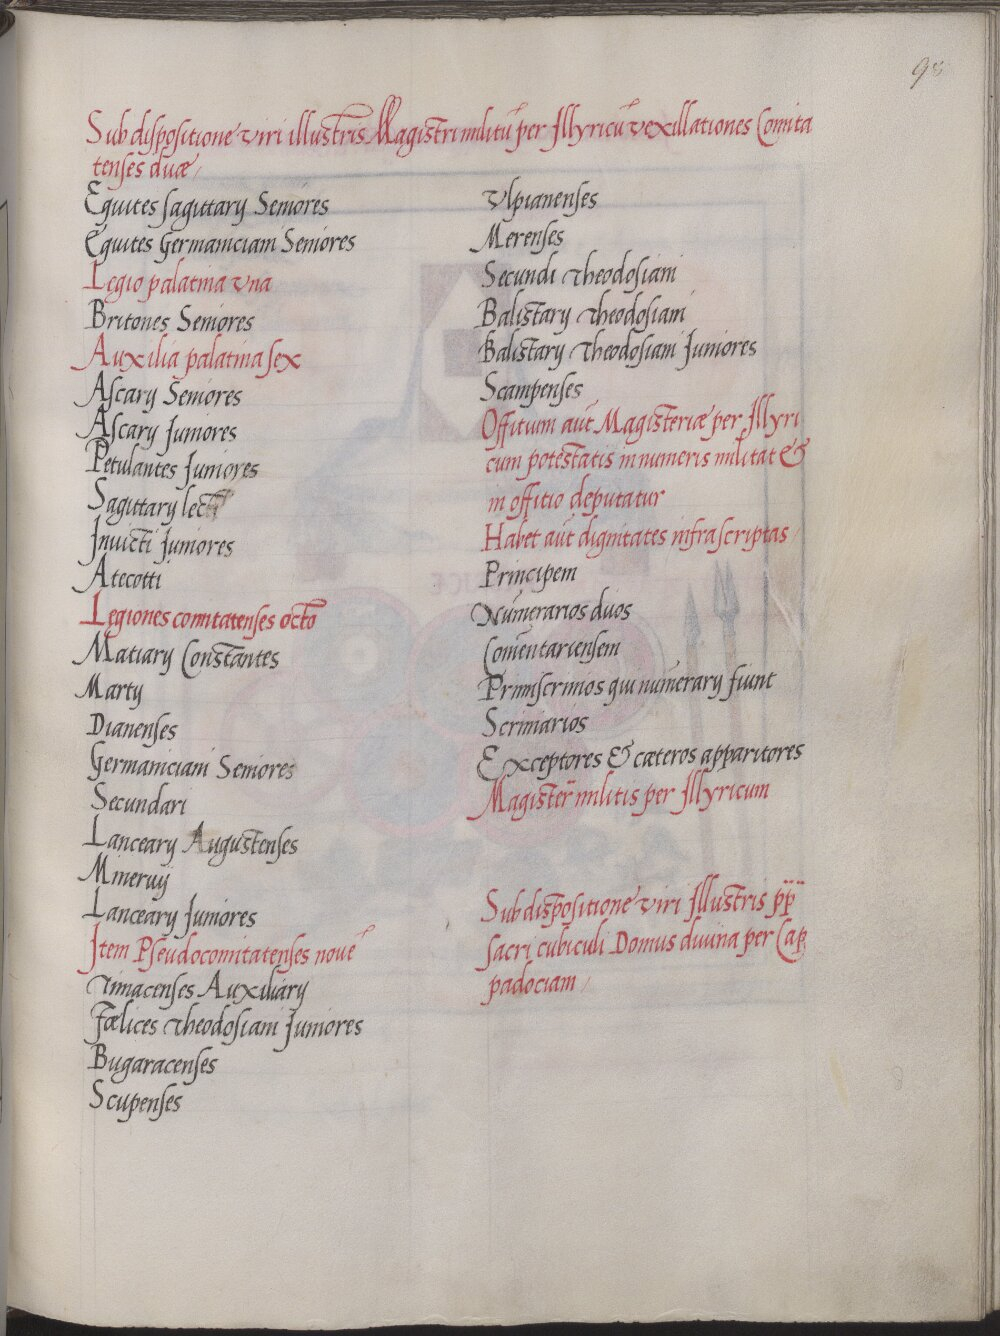 98
Sub dispositione viri illustris Magistri militū per Illyricū vexillationes Comita
tenses duæ
Equites sagittarij Seniores
Equites Germaniciam Seniores
Legio palatina vna
Britones Seniores
Auxilia palatina sex
Ascarij Seniores
Ascarij Juniores
Petulantes Juniores
Sagittarij lecti
Inuicti Juniores
Atecotti
Legiones comitatenses octo
Matiarij Constantes
Martij
Dianenses
Germaniciani Seniores
Secundari
Lancearij Augustenses
Mineruij
Lancearij Juniores
Item Pseudocomitatenses nouē
Timacenses Auxiliarij
Fœlices Theodosiani Juniores
Bugaracenses
Scupenses
Vlpianenses
Merenses
Secundi Theodosiani
Balistarij Theodosiani
Balistarij Theodosiani Juniores
Scampenses
Offitium aūt Magisteriæ per Illyri
cum potestatis in numeris militat &
in offitio deputatur
Habet aūt dignitates infrascriptas
Principem
Numerarios duos
Comentariensem
Primiscrinios qui numerarij fiunt
Scriniarios
Exceptores & cæteros apparitores
Magister militis per Illyricum
Sub dispositione viri Illustris pp
sacri cubiculi Domus diuina per Cap
padociam